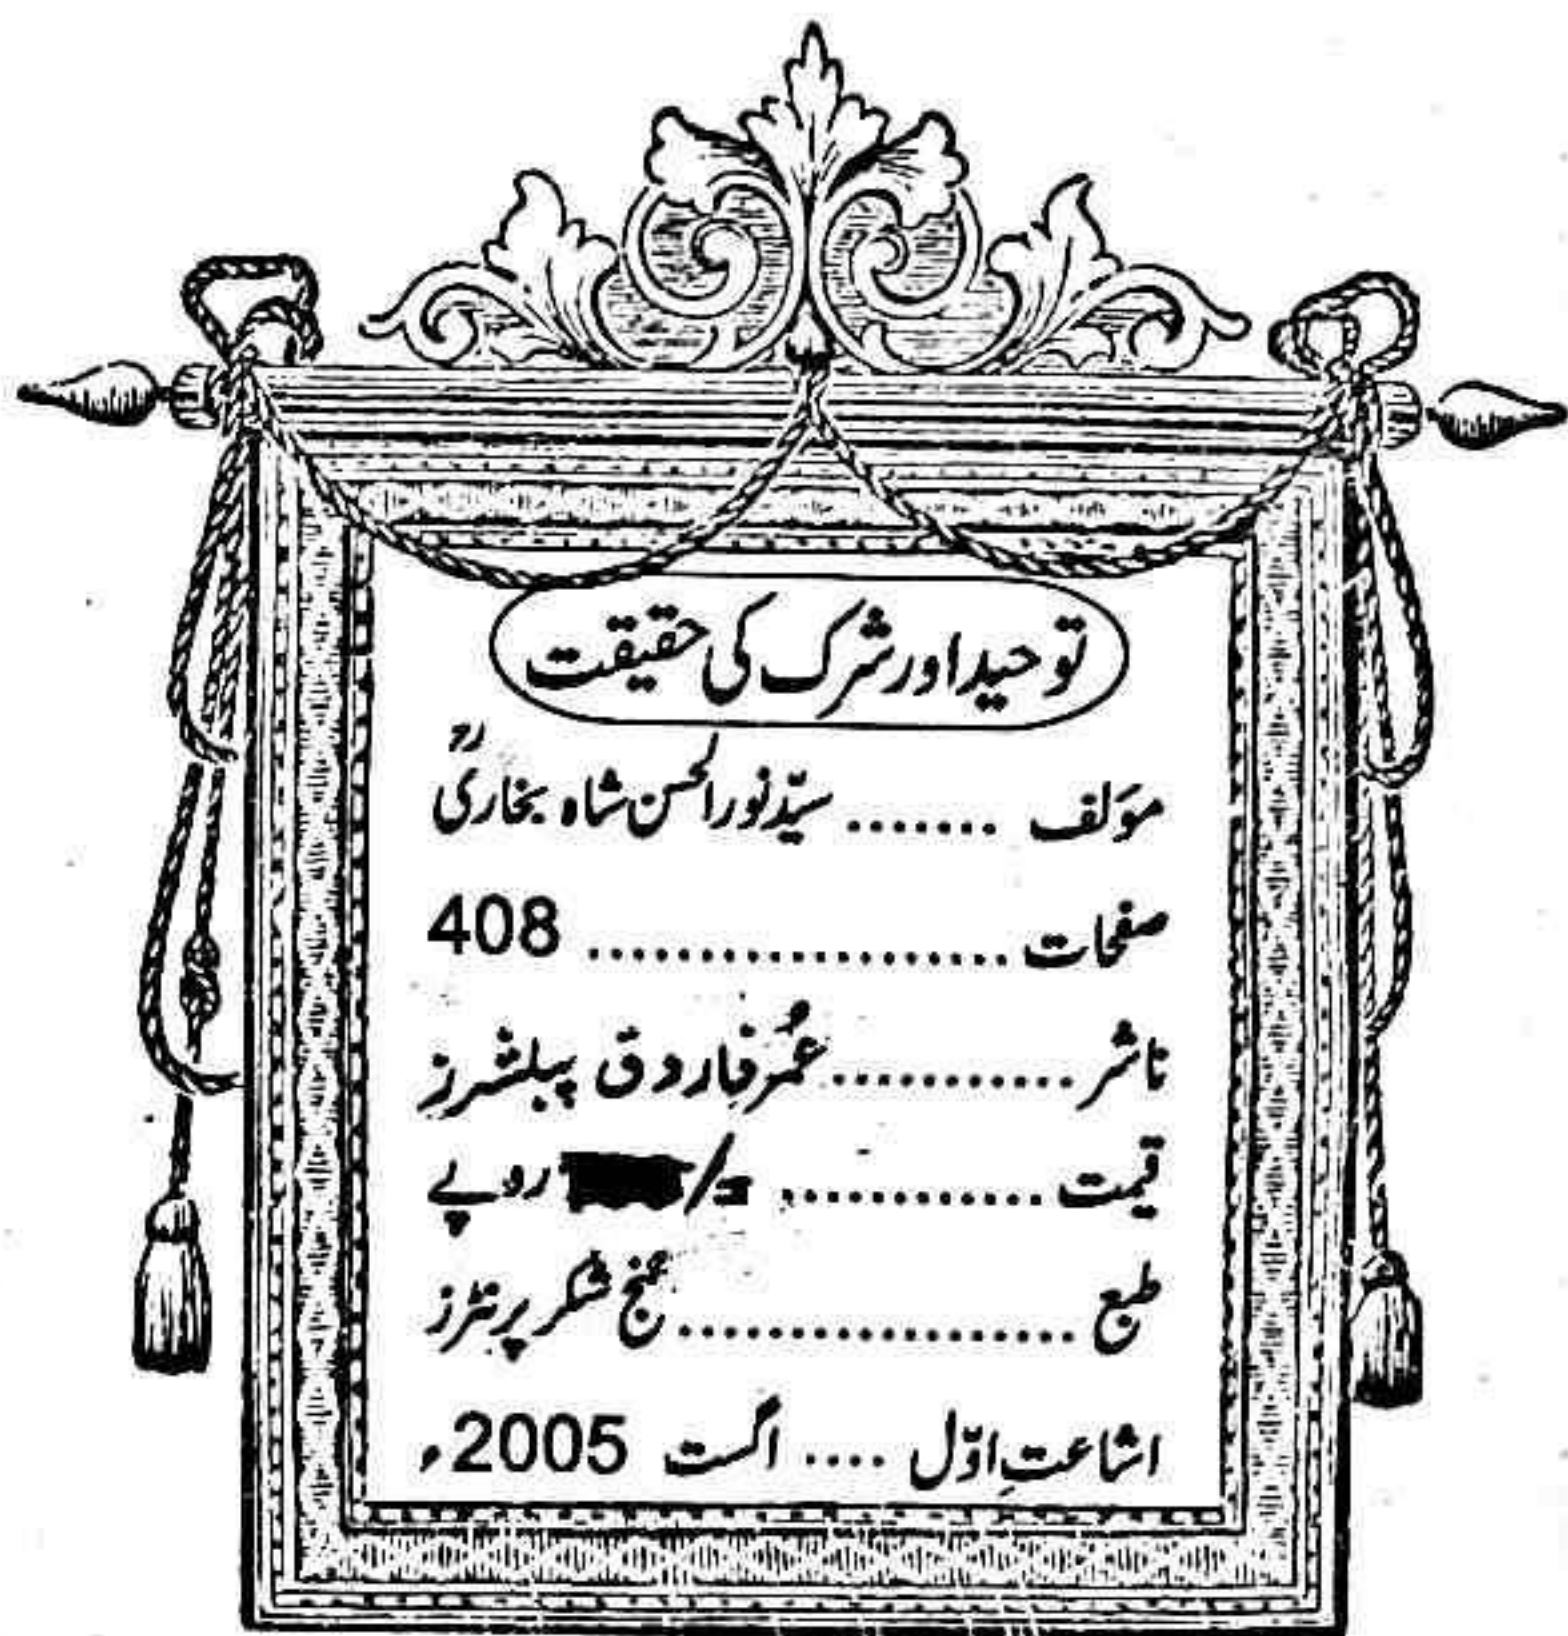 توحید اور شرک کی حقیقت
مؤلف ....... سیّد نور الحسن شاہ بخاریؒ
صفحات .................... 408
ناشر ............ عُمر فاروق پبلشرز
قیمت ............. /= روپے
طبع .................. گنج شکر پرنٹرز
اشاعتِ اوّل .... اگست 2005ء